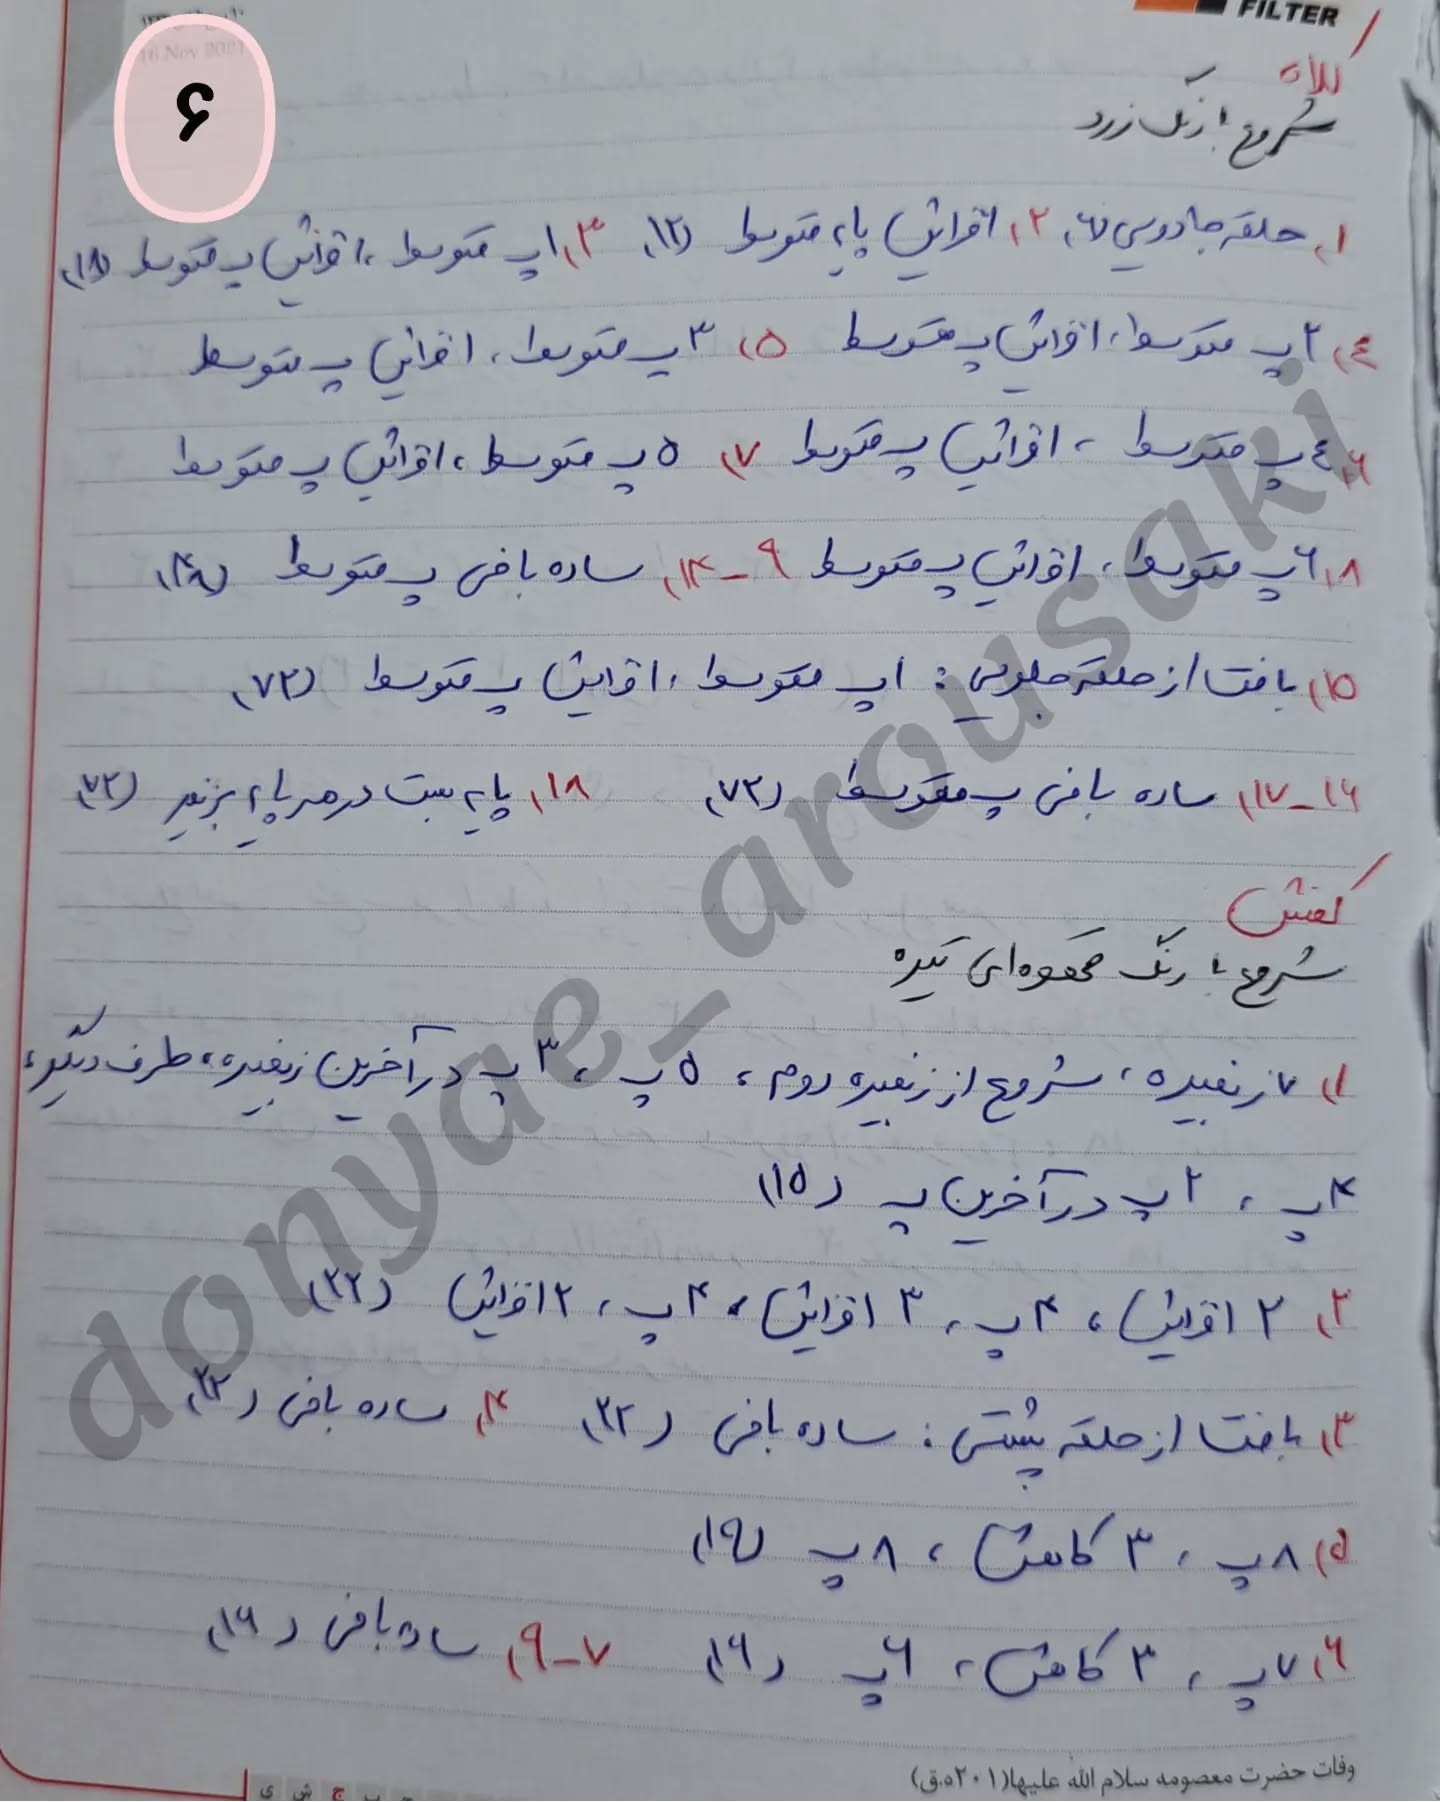 FILTER
16 Nov 2021
۶
کلاه
شروع با رنگ زرد
۱) حلقه جادویی ۶) ۲) افزایش پایه متوسط (۱۲) ۳) ۱پ متوسط، افزایش پ متوسط (۱۸)
۴) ۲پ متوسط، افزایش پ متوسط ۵) ۳پ متوسط، افزایش پ متوسط
۶) ۴پ متوسط، افزایش پ متوسط ۷) ۵پ متوسط، افزایش پ متوسط
۸) ۶پ متوسط، افزایش پ متوسط ۹-۱۴) ساده بافی پ متوسط (۴۸)
۱۵) بافت از حلقه جلویی: ۱پ متوسط، افزایش پ متوسط (۷۲)
۱۶-۱۷) ساده بافی پ متوسط (۷۲) ۱۸) پایه بست در هر پایه بزنید (۷۲)
کفش
شروع با رنگ قهوه‌ای تیره
۱) ۷ زنجیره، شروع از زنجیره دوم، ۵پ، ۳پ در آخرین زنجیره، طرف دیگر،
۴پ، ۲پ در آخرین پ (۱۵)
۲) ۲ افزایش، ۴پ، ۳ افزایش، ۴پ، ۲ افزایش (۲۲)
۳) بافت از حلقه پشتی: ساده بافی (۲۲) ۴) ساده بافی (۲۲)
۵) ۸پ، ۳ کاهش، ۸پ (۱۹)
۶) ۷پ، ۳ کاهش، ۶پ (۱۶) ۷-۹) ساده بافی (۱۶)
وفات حضرت معصومه سلام الله علیها (۲۰۱ه.ق)
ج ش ی
donyae_arousaki